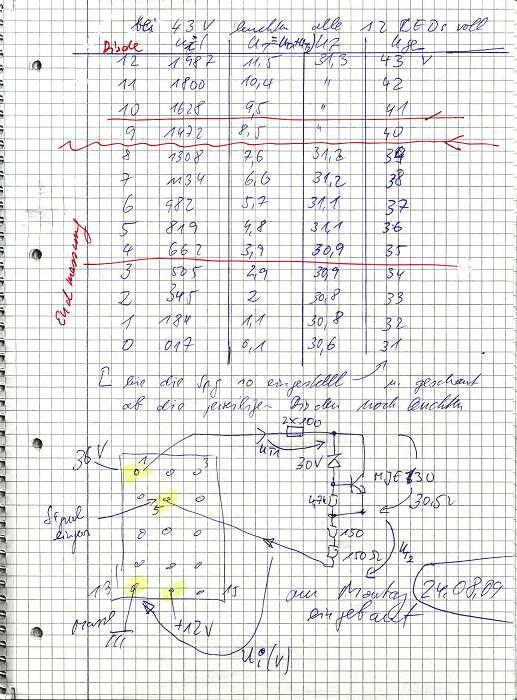 bei 43 V leuchten alle 12 LEDs voll
Diode
12 1987 11,5 31,3 43 V
11 1800 10,4 " 42
10 1628 9,5 " 41
9 1472 8,5 " 40
8 1308 7,6 31,2 39
7 1134 6,6 31,2 38
6 982 5,7 31,1 37
5 819 4,8 31,1 36
4 662 3,9 30,9 35
3 505 2,9 30,9 34
2 345 2 30,8 33
1 184 1,1 30,8 32
0 017 0,1 30,6 31
Endmessung
die Spg so eingestellt u. geschaut
ob die jeweiligen Dioden noch leuchten
2x100
36V 1 3
30V
Signal
eingang
5
47k
30,5V
150
150Ω
13 15
Masse
+12V
am Montag
eingebaut
24.08.09
Ui(V)